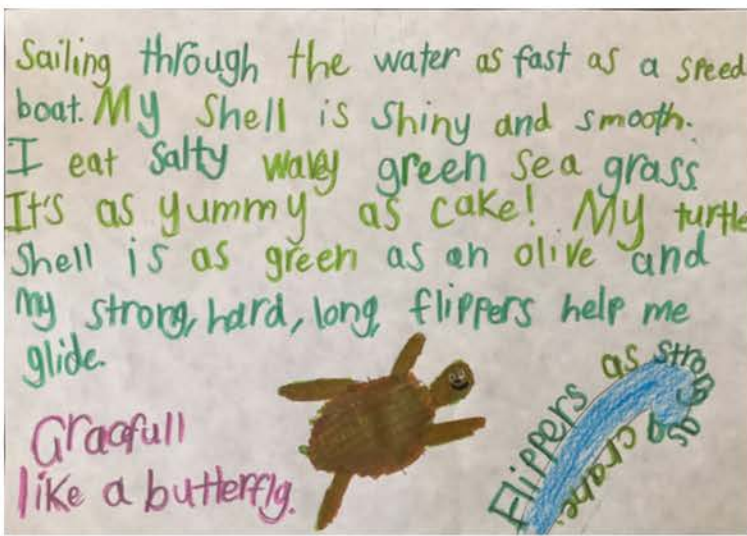 Sailing through the water as fast as a speed
boat. My shell is shiny and smooth.
I eat salty wavey green sea grass.
It's as yummy as cake! My turtle
shell is as green as an olive and
my strong, hard, long, flippers help me
glide.
Graafull
like a butterfly.
Flippers as strong as a crane.